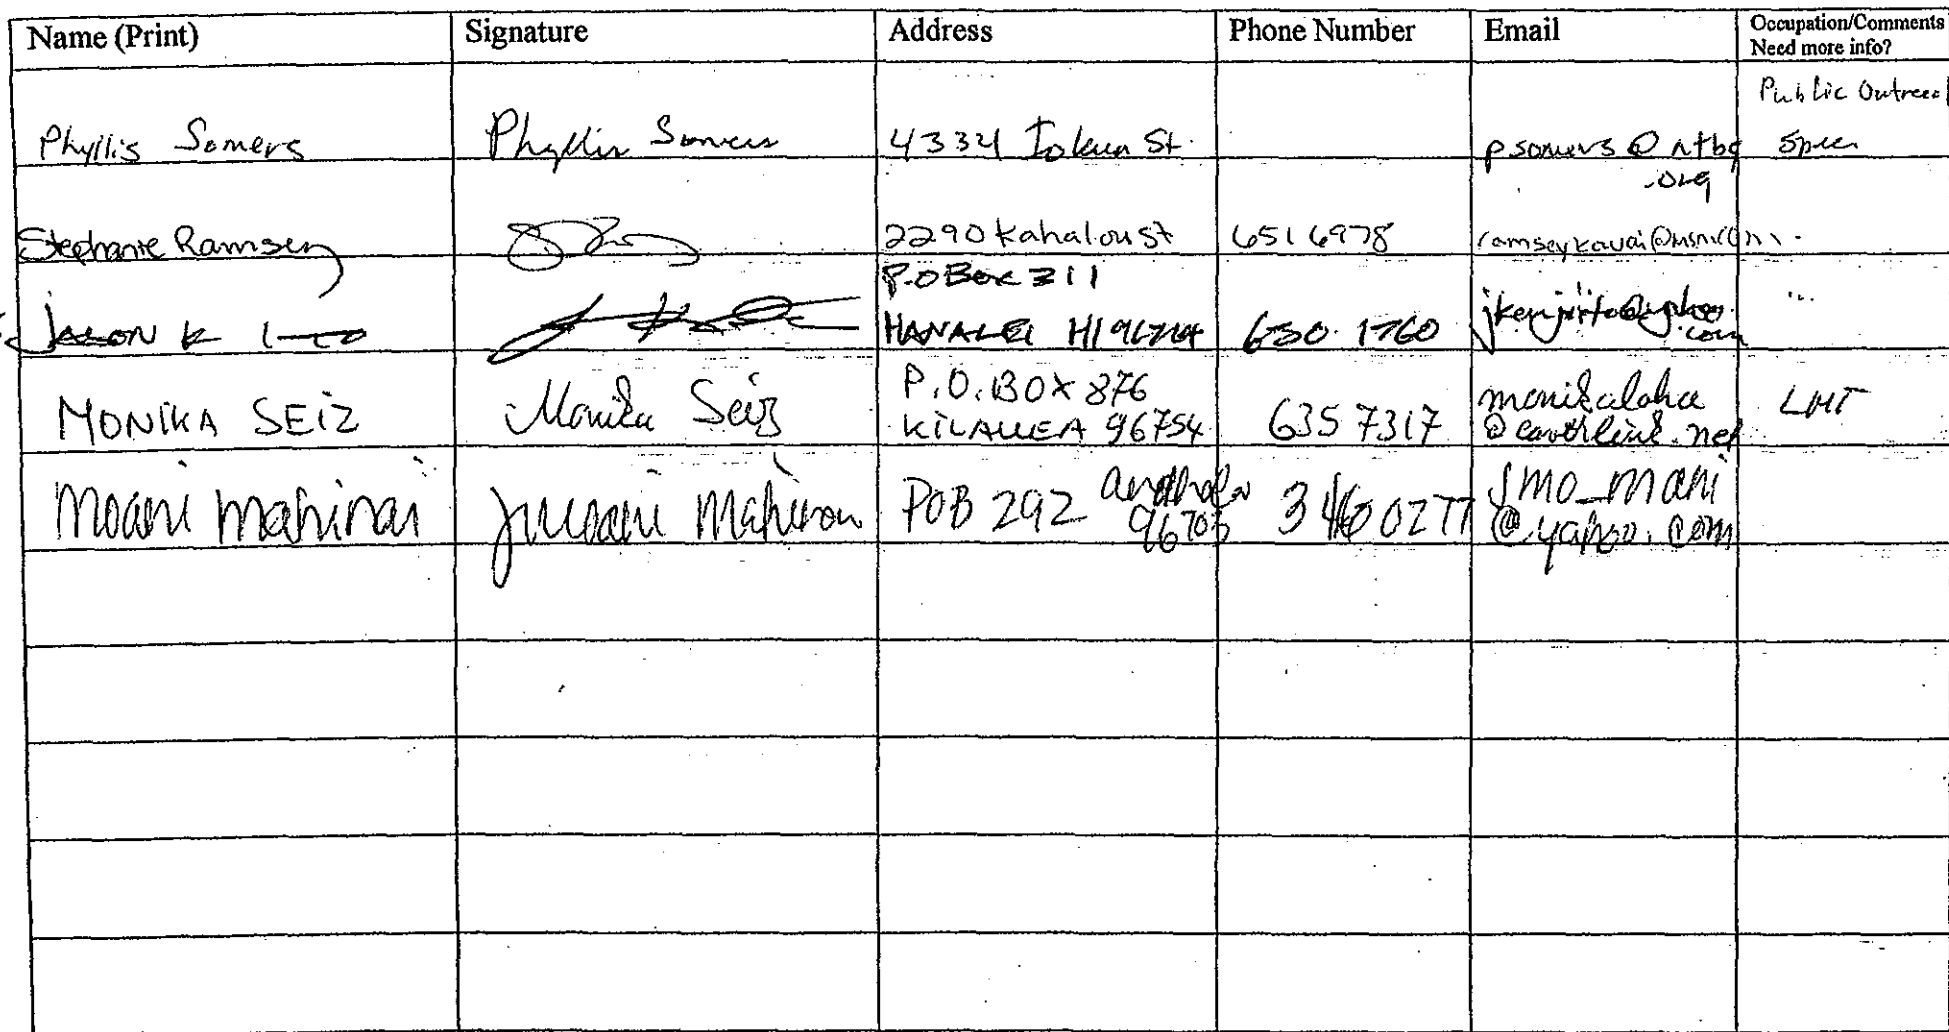 Name (Print) Signature Address Phone Number Email Occupation/Comments
Need more info?
Public
Phyllis Somers Phyllis Somers 4334 St. psomers@ntbg
.org
Stephanie Ramsey 2290 Kahalou St 651 6978 ramseykauai@msn.com
P.O Box 311
Jason K Ito HANALEI HI 96714 650 1760 jkenjiito@yahoo
.com
MONIKA SEIZ Monika Seiz P.O. BOX 876
KILAUEA 96754 635 7317 monikaloha
@earthlink.net LMT
Moani Mahinai Mahinai POB 292
96703 0277 jmo_mani
@yahoo.com